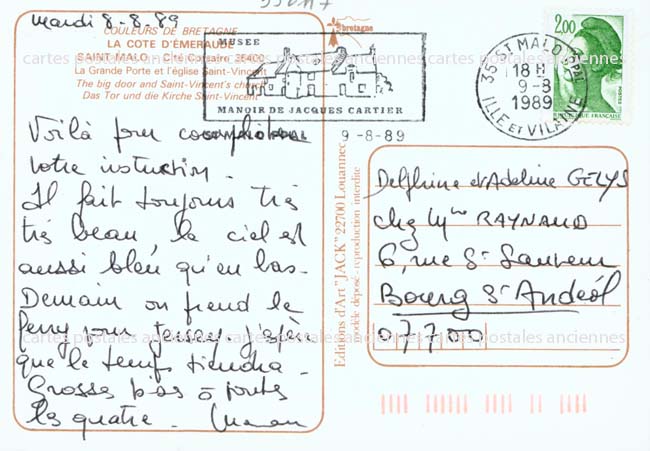 Mardi 8-8.89
COULEURS DE BRETAGNE
LA COTE D'ÉMERAUDE
SAINT-MALO - Cité Corsaire 35400
La Grande Porte et l'église Saint-Vincent
The big door and Saint-Vincent's church
Das Tor und die Kirche Saint-Vincent
Voilà pour compléter
votre instruction.
Il fait toujours très
très beau, le ciel est
aussi bleu qu'en bas.
Demain on prend le
ferry pour Jersey j'espère
que le temps tiendra.
Grosses bises à toutes
les quatre.
bretagne
MUSEE
MANOIR DE JACQUES CARTIER
9-8-89
35 ST MALO PPAL
18 H
9-8
1989
ILLE ET VILAINE
2,00
POSTES
REPUBLIQUE FRANÇAISE
Editions d'Art "JACK" 22700 Louannec
modèle déposé - reproduction interdite
Delphine et Adeline GELYS
chez Mme RAYNAUD
6, rue St Sauveur
Bourg St Andéol
07700
cartes postales anciennes